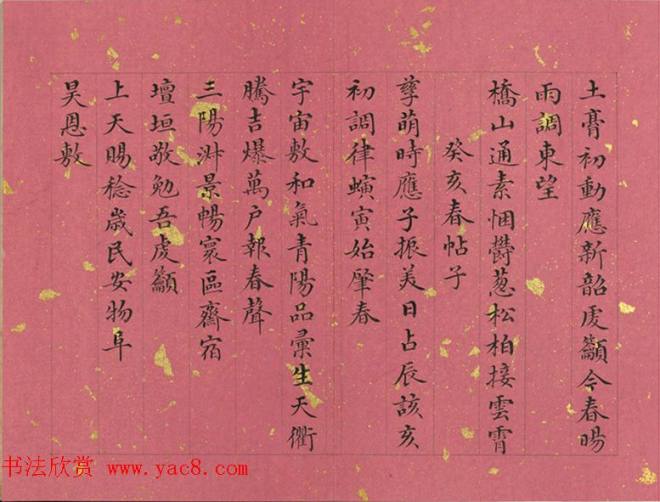 土膏初動應新韶虔籲今春暘
雨調東望
橋山通素悃鬱葱松柏接雲霄
癸亥春帖子
孳萌時應子振美日占辰該亥
初調律螾寅始肇春
宇宙敷和氣青陽品彙生天衢
騰吉爆萬戶報春聲
三陽淑景暢寰區齋宿
壇垣敬勉吾虔籲
上天賜稔歲民安物阜
昊恩敷
书法欣赏 www.yac8.com